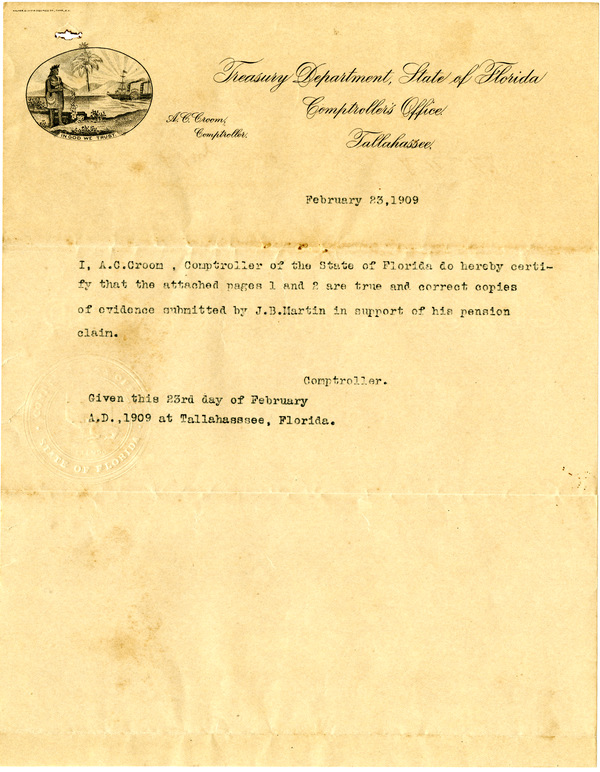 Treasury Department, State of Florida
Comptroller's Office.
Tallahassee.
A. C. Croom,
Comptroller.
IN GOD WE TRUST.
February 23,1909
I, A.C.Croom , Comptroller of the State of Florida do hereby certi-
fy that the attached pages 1 and 2 are true and correct copies
of evidence submitted by J.B.Martin in support of his pension
claim.
Comptroller.
Given this 23rd day of February
A.D.,1909 at Tallahasssee, Florida.
STATE OF FLORIDA